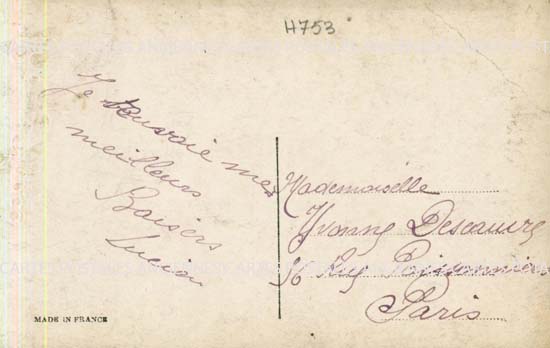 H753
Je t'envoie mes
meilleurs
Baisers
Lucien
Mademoiselle
Yvonne
56 Rue
Paris
MADE IN FRANCE